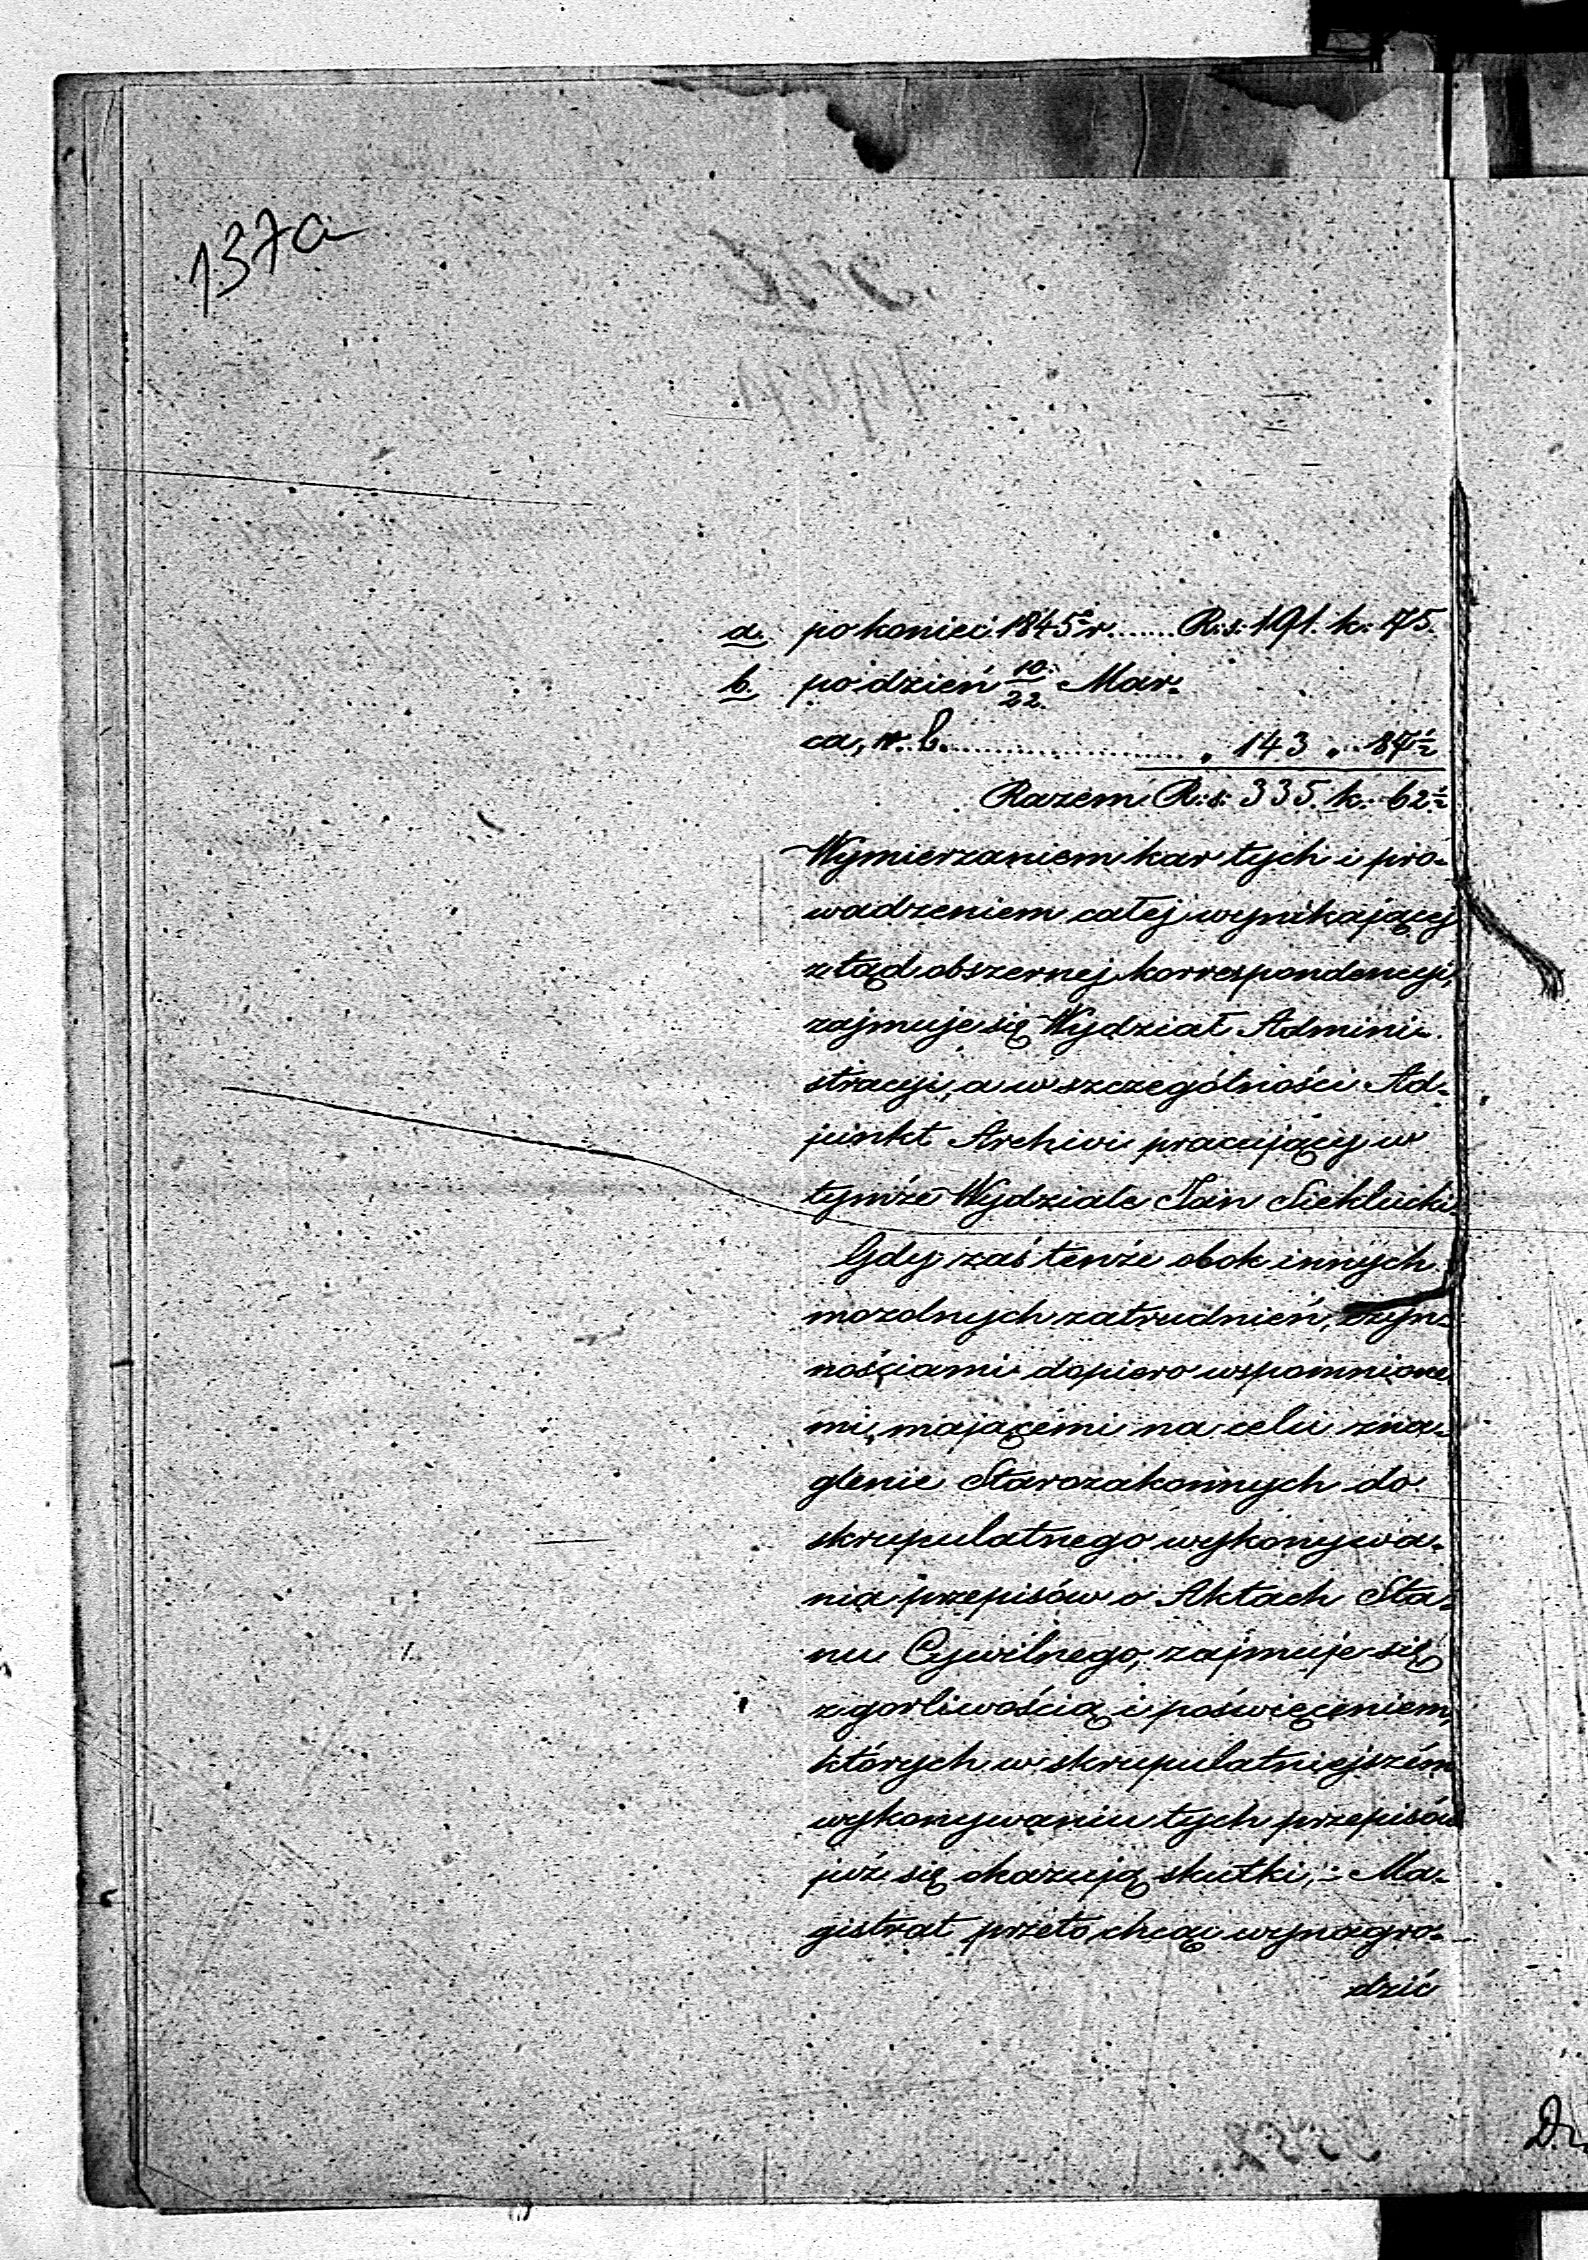 137a
a. po koniec 1845º r. ...... R: s: 191. k: 75.
b. po dzień 10/22 Mar-
ca, r. b. ................ „ 143 „ 87½
Razem R: s: 335. k: 62½
Wymierzaniem kar tych i pro-
wadzeniem całej wynikającej
ztąd obszernej korrespondencyi,
zajmuje się Wydział Admini-
stracyi, a w szczególności Ad-
junkt Archivi pracujący w
tymże Wydziale Jan Sieklucki.
Gdy zaś tenże obok innych
mozolnych zatrudnień, czyn-
nościami dopiero wspomnione
mi, mającemi na celu zna-
glenie Starozakonnych do
skrupulatnego wykonywa-
nia przepisów o Aktach Sta-
nu Cywilnego, zajmuje się
z gorliwością i poświęceniem,
których w skrupulatniejszém
wykonywaniu tych przepisów
już się okazują skutki, - Ma-
gistrat przeto chcąc wynagro-
dzić